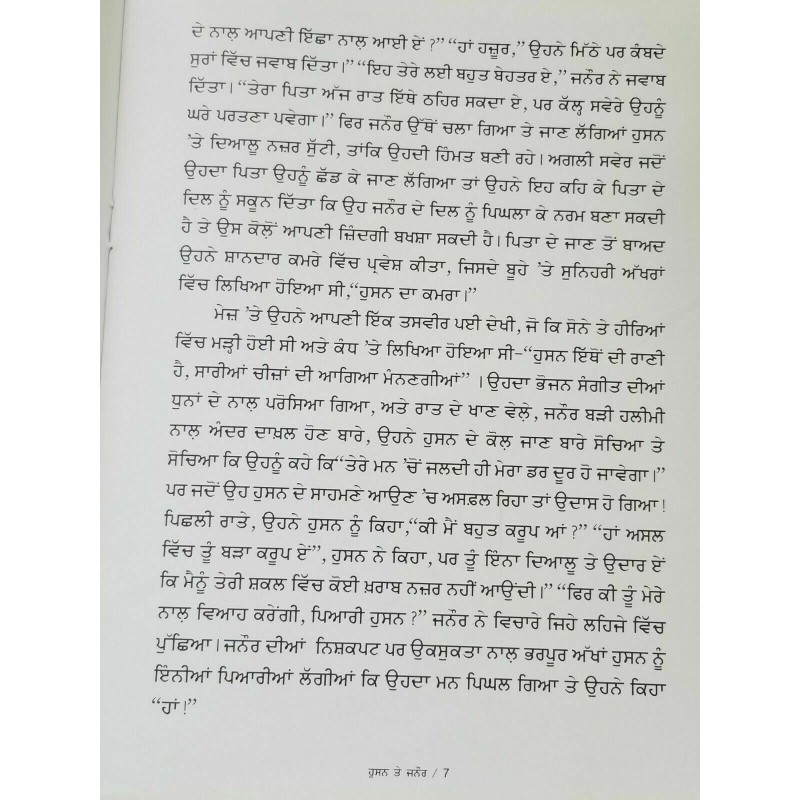 ਦੇ ਨਾਲ਼ ਆਪਣੀ ਇੱਛਾ ਨਾਲ਼ ਆਈ ਏਂ ?” “ਹਾਂ ਹਜ਼ੂਰ,” ਉਹਨੇ ਮਿੱਠੇ ਪਰ ਕੰਬਦੇ
ਸੁਰਾਂ ਵਿੱਚ ਜਵਾਬ ਦਿੱਤਾ।” “ਇਹ ਤੇਰੇ ਲਈ ਬਹੁਤ ਬੇਹਤਰ ਏ,” ਜਨੌਰ ਨੇ ਜਵਾਬ
ਦਿੱਤਾ। “ਤੇਰਾ ਪਿਤਾ ਅੱਜ ਰਾਤ ਇੱਥੇ ਠਹਿਰ ਸਕਦਾ ਏ, ਪਰ ਕੱਲ੍ਹ ਸਵੇਰੇ ਉਹਨੂੰ
ਘਰੇ ਪਰਤਣਾ ਪਵੇਗਾ।” ਫਿਰ ਜਨੌਰ ਉੱਥੋਂ ਚਲਾ ਗਿਆ ਤੇ ਜਾਣ ਲੱਗਿਆਂ ਹੁਸਨ
’ਤੇ ਦਿਆਲੂ ਨਜ਼ਰ ਸੁੱਟੀ, ਤਾਂਕਿ ਉਹਦੀ ਹਿੰਮਤ ਬਣੀ ਰਹੇ। ਅਗਲੀ ਸਵੇਰ ਜਦੋਂ
ਉਹਦਾ ਪਿਤਾ ਉਹਨੂੰ ਛੱਡ ਕੇ ਜਾਣ ਲੱਗਿਆ ਤਾਂ ਉਹਨੇ ਇਹ ਕਹਿ ਕੇ ਪਿਤਾ ਦੇ
ਦਿਲ ਨੂੰ ਸਕੂਨ ਦਿੱਤਾ ਕਿ ਉਹ ਜਨੌਰ ਦੇ ਦਿਲ ਨੂੰ ਪਿਘਲਾ ਕੇ ਨਰਮ ਬਣਾ ਸਕਦੀ
ਹੈ ਤੇ ਉਸ ਕੋਲ਼ੋਂ ਆਪਣੀ ਜ਼ਿੰਦਗੀ ਬਖਸ਼ਾ ਸਕਦੀ ਹੈ। ਪਿਤਾ ਦੇ ਜਾਣ ਤੋਂ ਬਾਅਦ
ਉਹਨੇ ਸ਼ਾਨਦਾਰ ਕਮਰੇ ਵਿੱਚ ਪ੍ਰਵੇਸ਼ ਕੀਤਾ, ਜਿਸਦੇ ਬੂਹੇ ’ਤੇ ਸੁਨਿਹਰੀ ਅੱਖਰਾਂ
ਵਿੱਚ ਲਿਖਿਆ ਹੋਇਆ ਸੀ,“ਹੁਸਨ ਦਾ ਕਮਰਾ।”
ਮੇਜ਼ ’ਤੇ ਉਹਨੇ ਆਪਣੀ ਇੱਕ ਤਸਵੀਰ ਪਈ ਦੇਖੀ, ਜੋ ਕਿ ਸੋਨੇ ਤੇ ਹੀਰਿਆਂ
ਵਿੱਚ ਮੜ੍ਹੀ ਹੋਈ ਸੀ ਅਤੇ ਕੰਧ ’ਤੇ ਲਿਖਿਆ ਹੋਇਆ ਸੀ-“ਹੁਸਨ ਇੱਥੋਂ ਦੀ ਰਾਣੀ
ਹੈ, ਸਾਰੀਆਂ ਚੀਜ਼ਾਂ ਦੀ ਆਗਿਆ ਮੰਨਣਗੀਆਂ” । ਉਹਦਾ ਭੋਜਨ ਸੰਗੀਤ ਦੀਆਂ
ਧੁਨਾਂ ਦੇ ਨਾਲ਼ ਪਰੋਸਿਆ ਗਿਆ, ਅਤੇ ਰਾਤ ਦੇ ਖਾਣ ਵੇਲ਼ੇ, ਜਨੌਰ ਬੜੀ ਹਲੀਮੀ
ਨਾਲ਼ ਅੰਦਰ ਦਾਖ਼ਲ ਹੋਣ ਬਾਰੇ, ਉਹਨੇ ਹੁਸਨ ਦੇ ਕੋਲ਼ ਜਾਣ ਬਾਰੇ ਸੋਚਿਆ ਤੇ
ਸੋਚਿਆ ਕਿ ਉਹਨੂੰ ਕਹੇ ਕਿ“ਤੇਰੇ ਮਨ ’ਚੋਂ ਜਲਦੀ ਹੀ ਮੇਰਾ ਡਰ ਦੂਰ ਹੋ ਜਾਵੇਗਾ।”
ਪਰ ਜਦੋਂ ਉਹ ਹੁਸਨ ਦੇ ਸਾਹਮਣੇ ਆਉਣ ’ਚ ਅਸਫ਼ਲ ਰਿਹਾ ਤਾਂ ਉਦਾਸ ਹੋ ਗਿਆ!
ਪਿਛਲੀ ਰਾਤੇ, ਉਹਨੇ ਹੁਸਨ ਨੂੰ ਕਿਹਾ,“ਕੀ ਮੈਂ ਬਹੁਤ ਕਰੂਪ ਆਂ ?” “ਹਾਂ ਅਸਲ
ਵਿੱਚ ਤੂੰ ਬੜਾ ਕਰੂਪ ਏਂ”, ਹੁਸਨ ਨੇ ਕਿਹਾ, ਪਰ ਤੂੰ ਇੰਨਾ ਦਿਆਲੂ ਤੇ ਉਦਾਰ ਏਂ
ਕਿ ਮੈਨੂੰ ਤੇਰੀ ਸ਼ਕਲ ਵਿੱਚ ਕੋਈ ਖ਼ਰਾਬ ਨਜ਼ਰ ਨਹੀਂ ਆਉਂਦੀ।” “ਫਿਰ ਕੀ ਤੂੰ ਮੇਰੇ
ਨਾਲ਼ ਵਿਆਹ ਕਰੇਂਗੀ, ਪਿਆਰੀ ਹੁਸਨ ?” ਜਨੌਰ ਨੇ ਵਿਚਾਰੇ ਜਿਹੇ ਲਹਿਜੇ ਵਿੱਚ
ਪੁੱਛਿਆ। ਜਨੌਰ ਦੀਆਂ ਨਿਸ਼ਕਪਟ ਪਰ ਉਕਸੁਕਤਾ ਨਾਲ਼ ਭਰਪੂਰ ਅੱਖਾਂ ਹੁਸਨ ਨੂੰ
ਇੰਨੀਆਂ ਪਿਆਰੀਆਂ ਲੱਗੀਆਂ ਕਿ ਉਹਦਾ ਮਨ ਪਿਘਲ ਗਿਆ ਤੇ ਉਹਨੇ ਕਿਹਾ
“ਹਾਂ!”
ਹੁਸਨ ਤੇ ਜਨੌਰ / 7